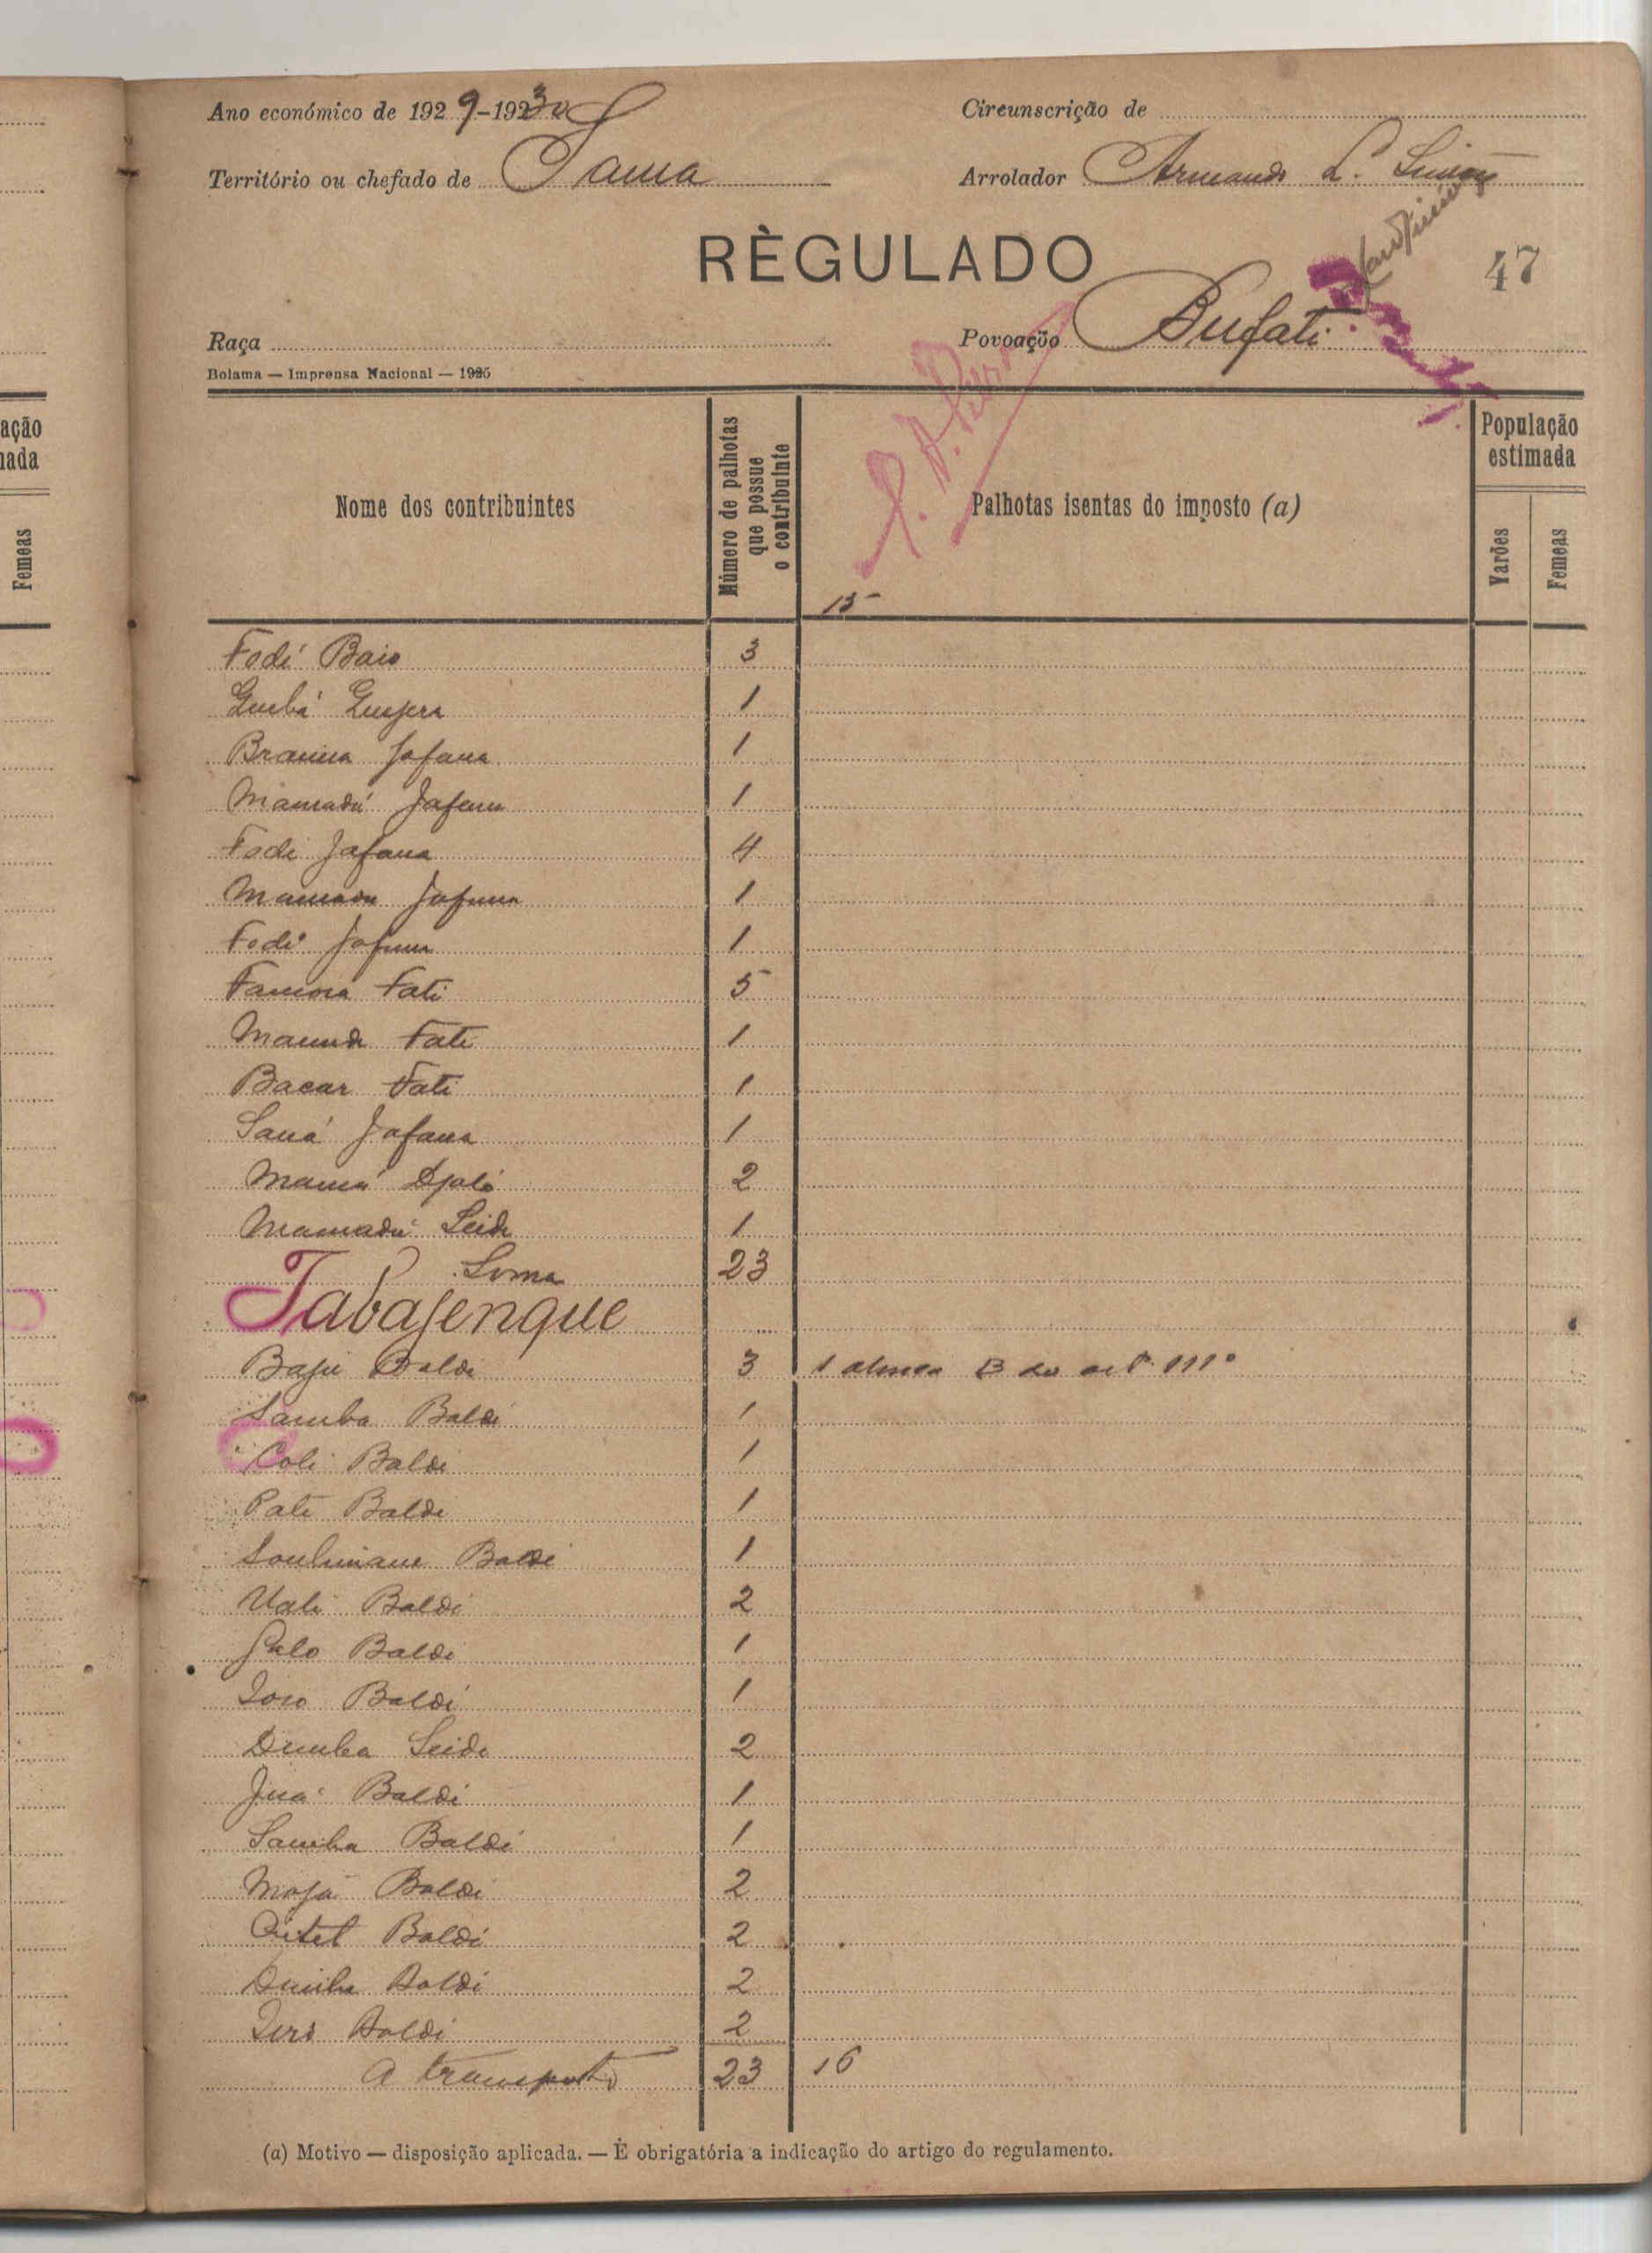 ação
nada
Femeas
Ano económico de 1929-1930
Circunscrição de
Território ou chefado de Sama
Arrolador Armando L.
RÈGULADO
47
Raça
Povoação Bufati
Bolama — Imprensa Nacional — 1925
Nome dos contribuintes
Número de palhotas que possue o contribuinte
Palhotas isentas do imposto (a)
População estimada
Varões
Femeas
15
Fodé Baio 3
1
Brauma Jafana 1
Mamadú Jafana 1
Fode Jafana 4
Mamadu Jafuna 1
Fodé Jafuna 1
Famora Fati 5
Fati 1
Bacar Fati 1
Saná Jafana 1
Djaló 2
Mamadú Seide 1
Soma 23
Tabajenque
Baldé 3 1 B do art. 111º
Samba Baldé 1
Coli Baldé 1
Pate Baldé 1
Soulimane Baldé 1
Uali Baldé 2
Galo Baldé 1
Baldé 1
Dumba Seide 2
Jua Baldé 1
Samba Baldé 1
Mojá Baldé 2
Baldé 2
Dumba Baldé 2
Baldé 2
A transporte 23 16
(a) Motivo — disposição aplicada. — É obrigatória a indicação do artigo do regulamento.